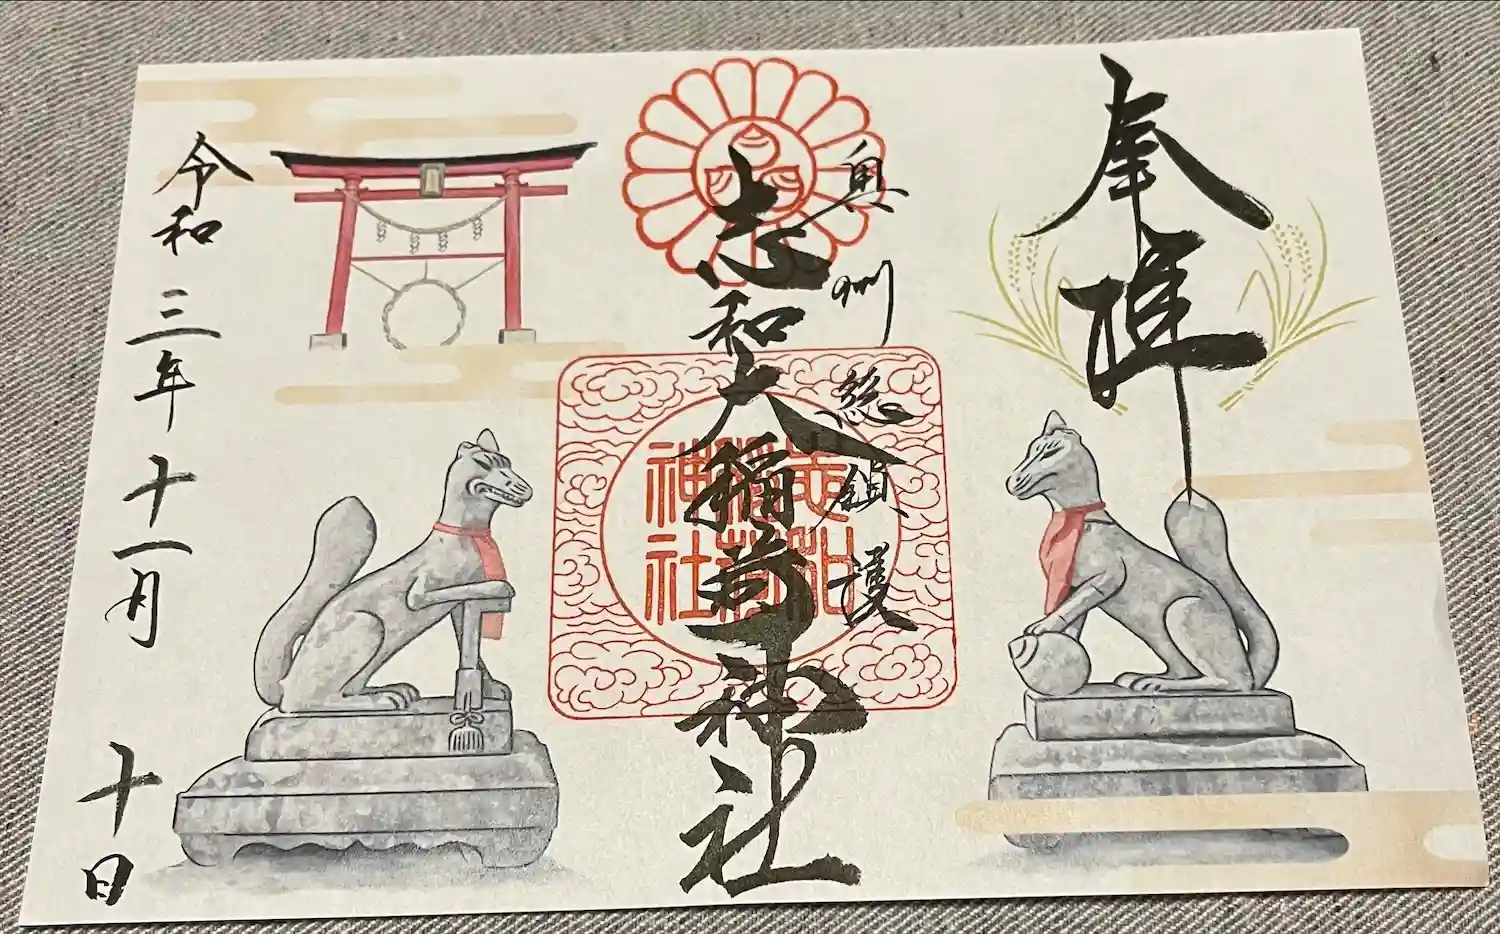 奉拝
奥州総鎮護
志和大稲荷神社
志和
稲荷
神社
令和三年十一月十日